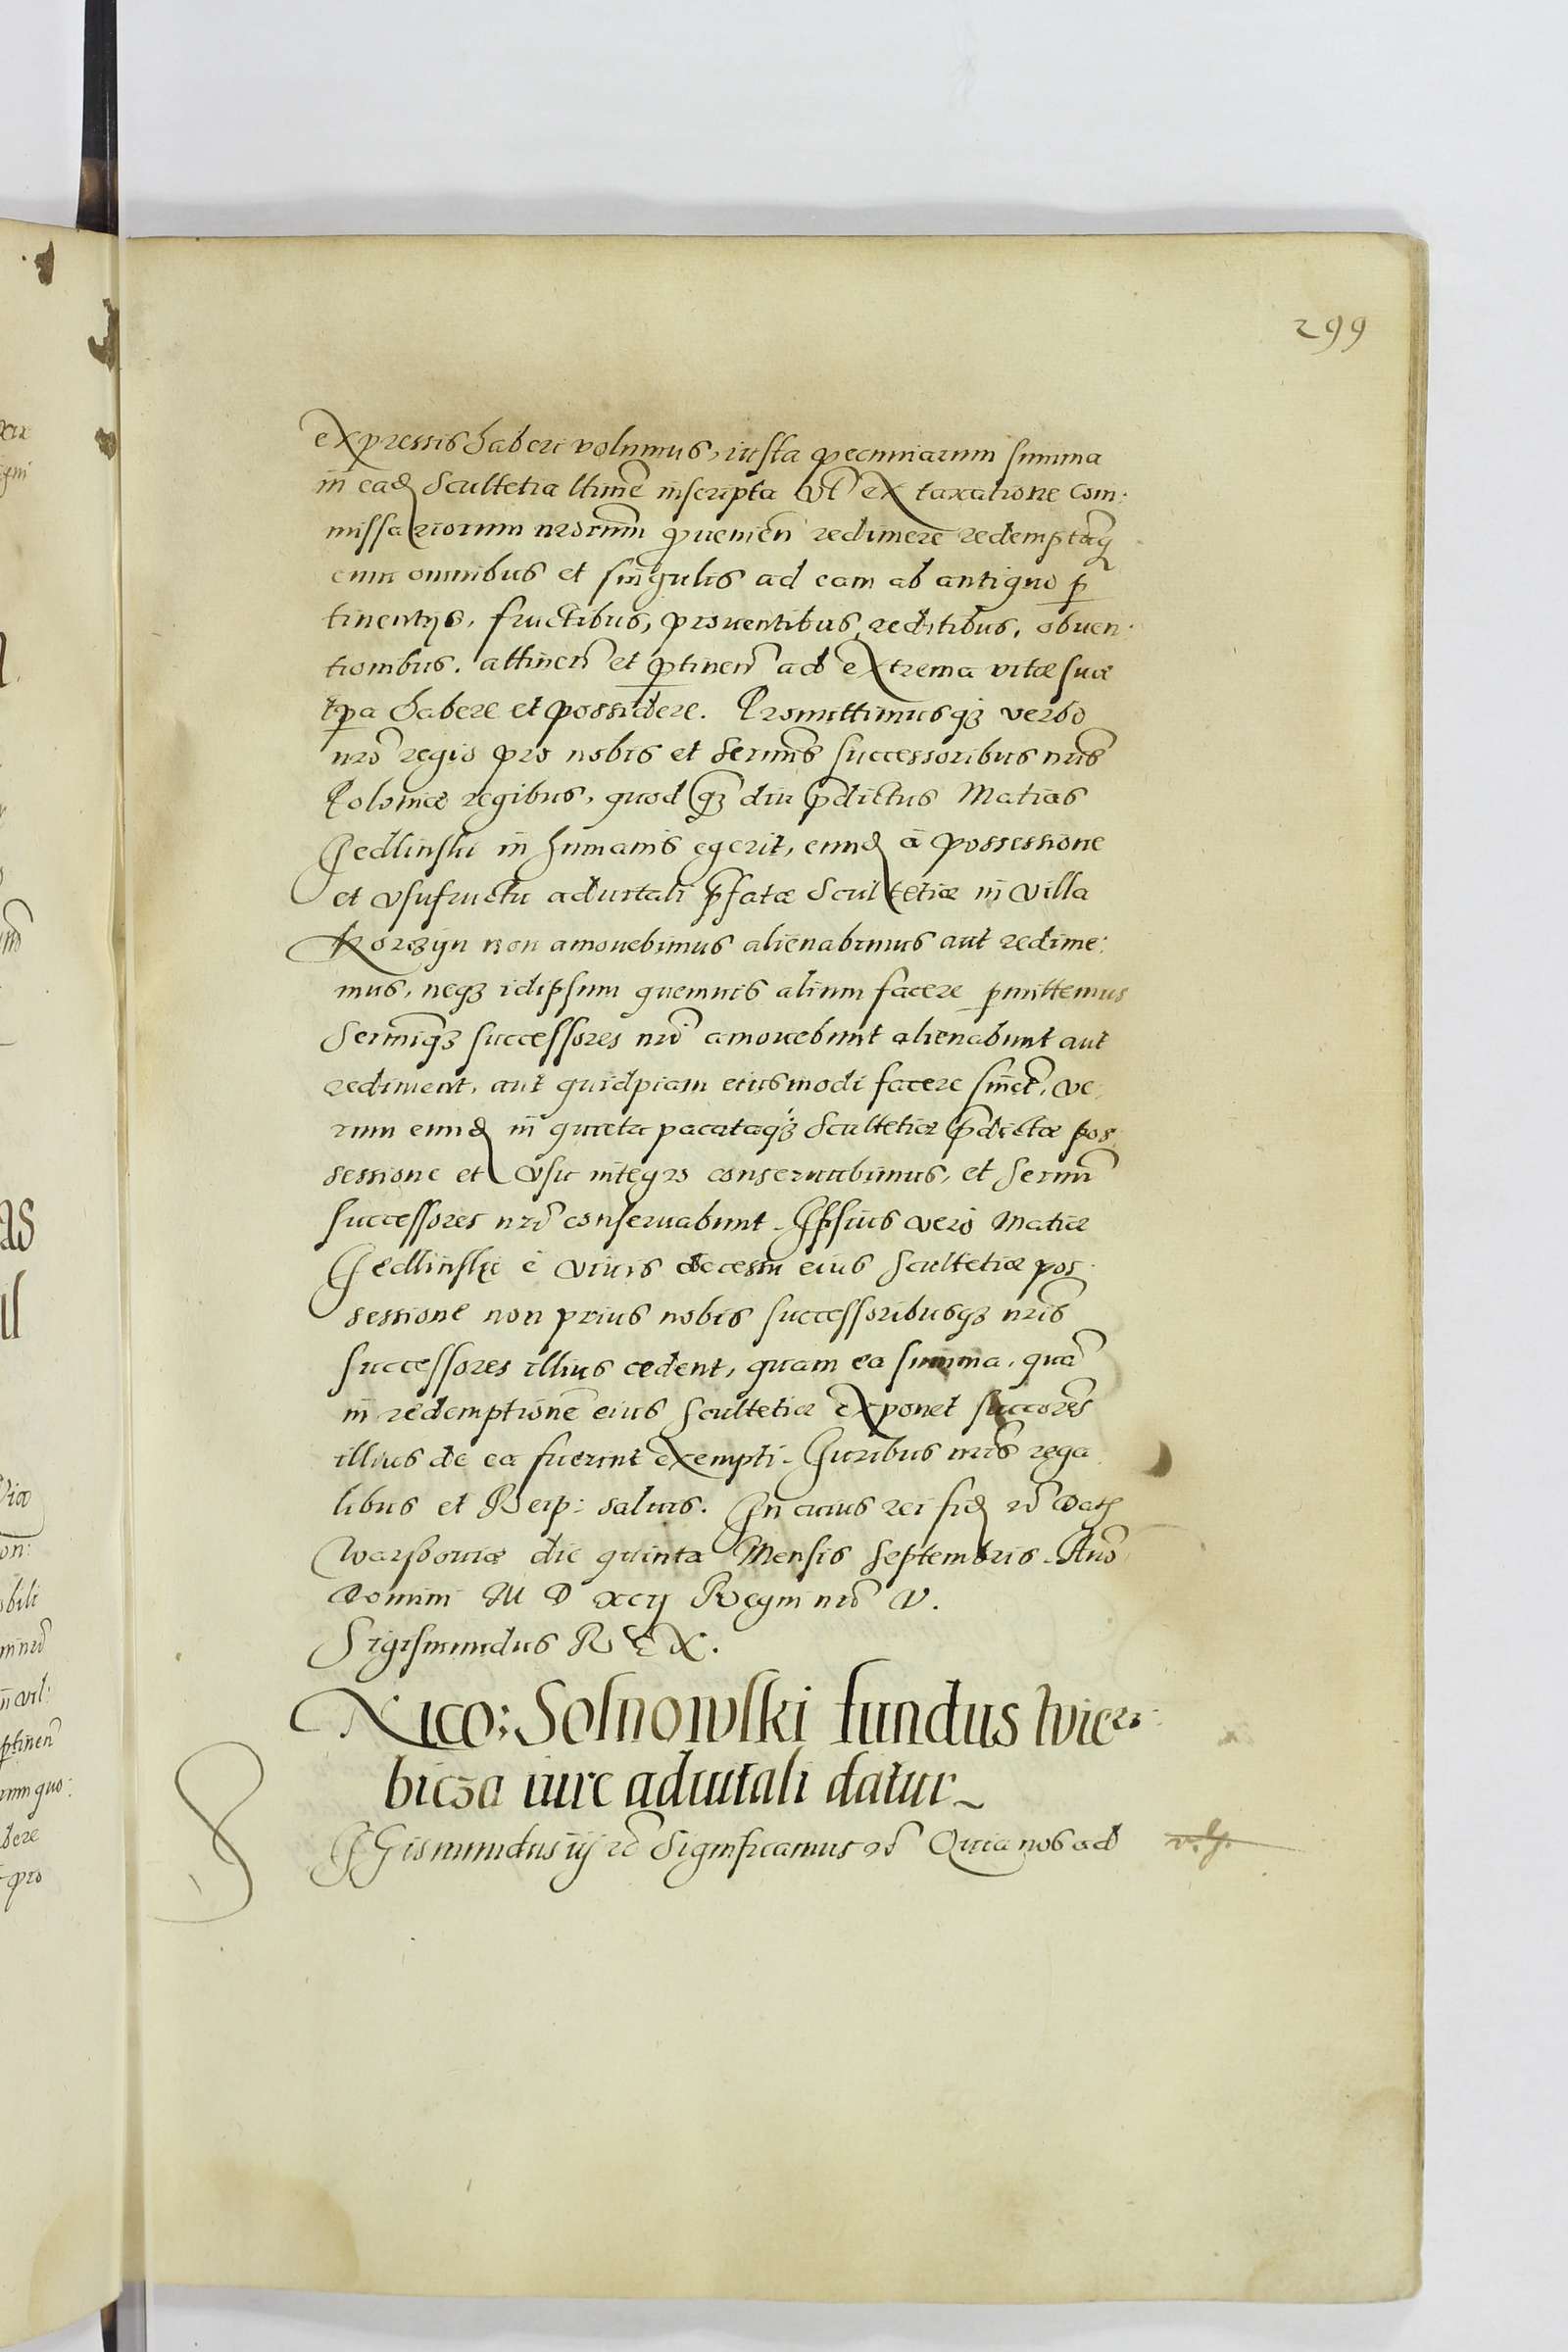 299
expressis haberi volumus, iusta pecuniarum summa
in eadꝫ Scultetia ltime inscripta vl ex taxatione com:
missariorum nrorum ꝓuenien redimere redemptaꝗ
cum omnibus et singulis ad eam ab antiquo ꝑ
tinentijs, fructibus, prouentibus, reditibus, obuen:
tionibus, attinen et ꝑtinen ad extrema vitæ suæ
tꝑa habere et possidere. Promittimusqꝫ verbo
nro regio pro nobis et Sermis successoribus nris
Poloniæ regibus, quod qꝫ diu ꝑdictus Matias
Jedlinski in humanis egerit, eundꝫ à possessione
et vsufructu aduitali ꝑfatæ Scultetiæ in villa
Korzijn non amouebimus alienabimus aut redime:
mus, neqꝫ idipsum quemuis alium facere ꝑmittemus
Sermiqꝫ successores nri amouebunt alienabunt aut
rediment, aut quidpiam eiusmodi facere sinent, ve:
rum eundꝫ in quieta pacataqꝫ Scultetiæ ꝑdictæ pos:
sessione et vsu integro conseruabimus, et Sermi
successores nri conseruabunt. Ipsius vero Matiæ
Jedlinski è viuis decessu eius Scultetiæ pos:
sessione non prius nobis successoribusqꝫ nris
successores illius cedent, quam ea summa, qua
in redemptione eius Scultetiæ exponet succores
illius de ea fuerint exempti. Juribus nris rega
libus et Reip: saluis. In cuius rei fidꝫ rc Datꝫ
Warszouiæ die quinta Mensis Septembris. Ano
Domini M D xcij Regni nri V.
Sigismundus REX.
Nico: Sosnowski fundus Wier:
bicza iure aduitali datur
SIGismundus iij rc Significamus rc Quia nos ad